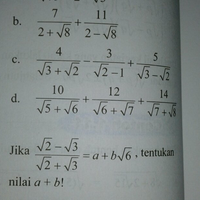 b. 7/(2+√8) + 11/(2−√8)
c. 4/(√3+√2) − 3/(√2−1) + 5/(√3−√2)
d. 10/(√5+√6) + 12/(√6+√7) + 14/(√7+√8)
Jika (√2−√3)/(√2+√3) = a+b√6, tentukan
nilai a + b!